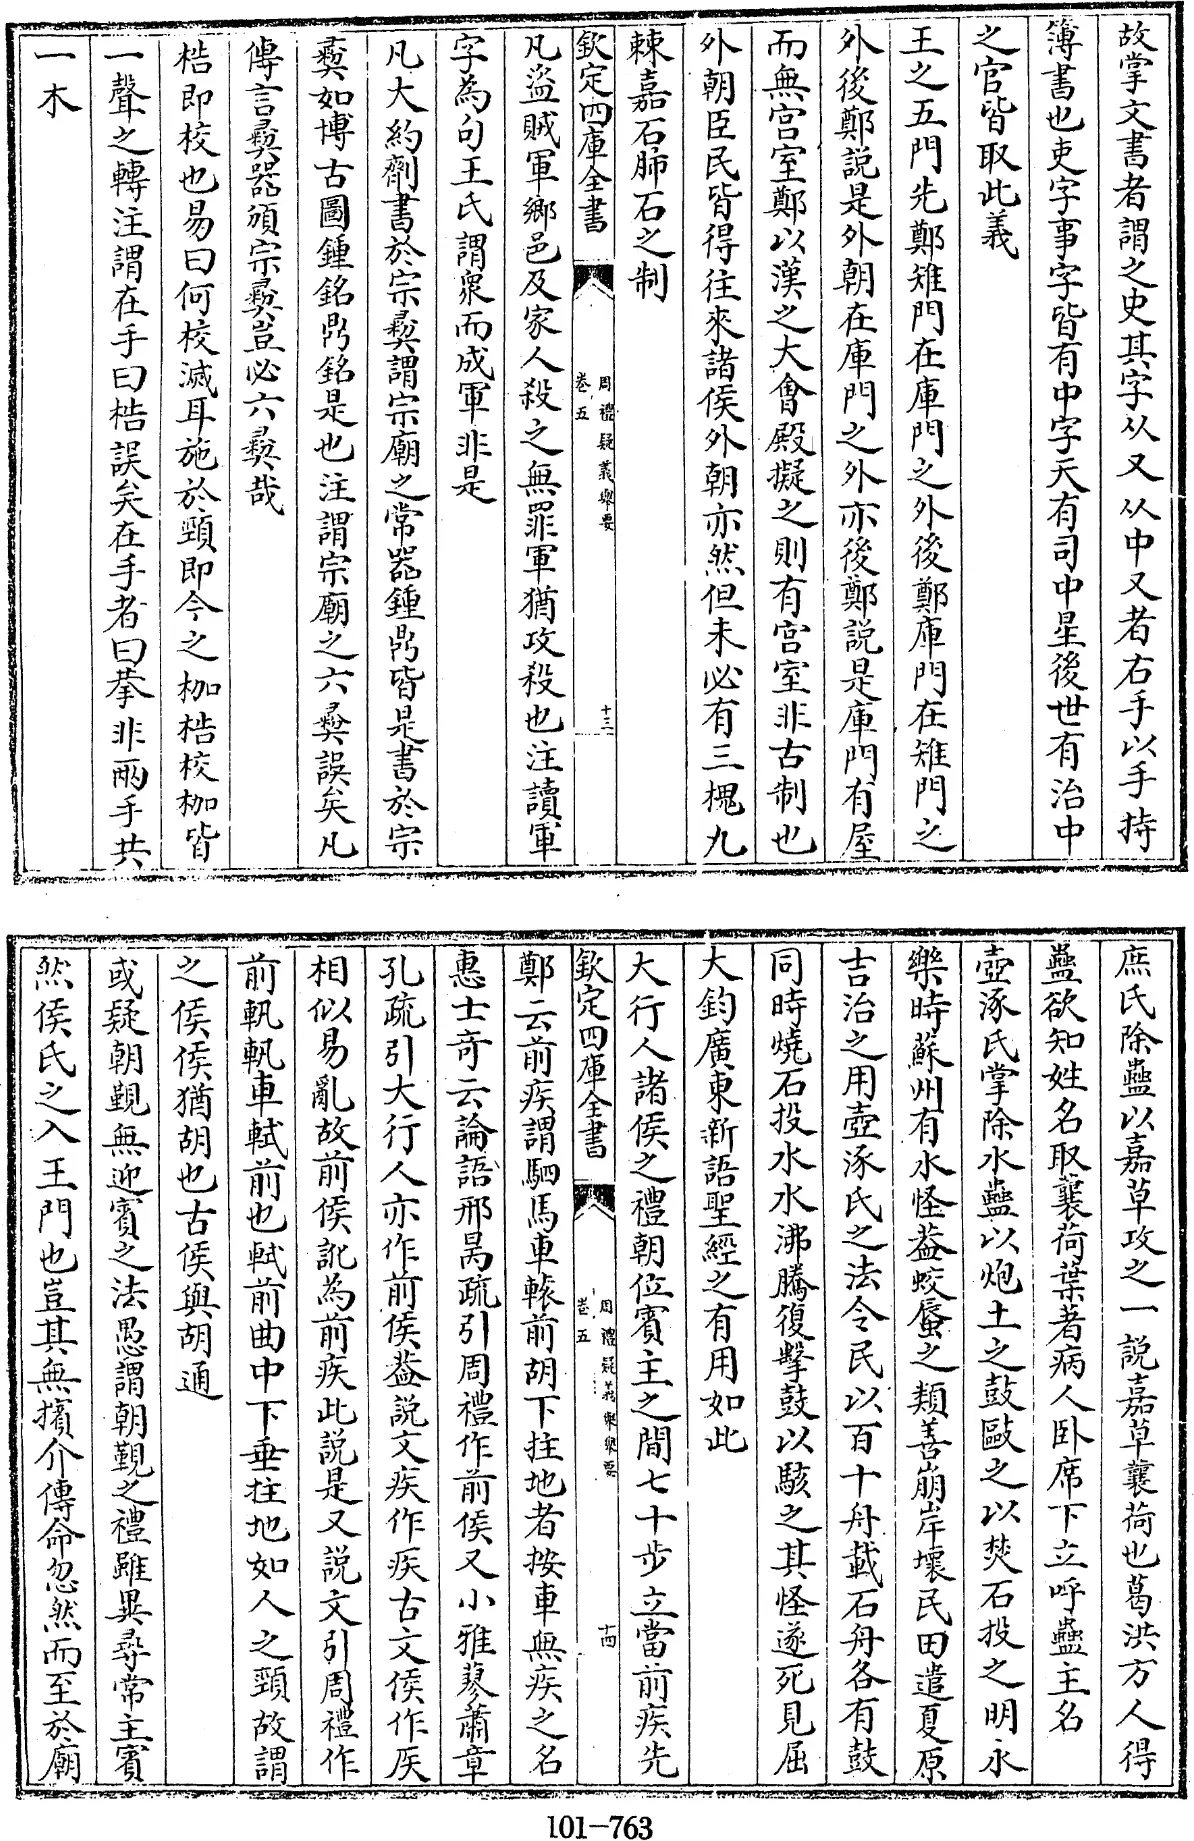 故掌文書者謂之史其字从又从中又者右手以手持
簿書也吏字事字皆有中字天有司中星後世有治中
之官皆取此義
王之五門先鄭雉門在庫門之外後鄭庫門在雉門之
外後鄭説是外朝在庫門之外亦後鄭説是庫門有屋
而無宫室鄭以漢之大會殿擬之則有宫室非古制也
外朝臣民皆得往來諸侯外朝亦然但未必有三槐九
棘嘉石肺石之制
欽定四庫全書
周禮疑義舉要
卷五
十三
凡盜賊軍鄉邑及家人殺之無罪軍猶攻殺也注讀軍
字為句王氏謂衆而成軍非是
凡大約劑書於宗彛謂宗廟之常器鍾鼎皆是書於宗
彛如博古圖鍾銘鼎銘是也注謂宗廟之六彛誤矣凡
傳言彛器頒宗彛豈必六彛哉
梏即校也易曰何校滅耳施於頸即今之枷梏校枷皆
一聲之轉注謂在手曰梏誤矣在手者曰拲非兩手共
一木
庶氏除蠱以嘉草攻之一説嘉草蘘荷也葛洪方人得
蠱欲知姓名取蘘荷葉著病人卧席下立呼蠱主名
壺涿氏掌除水蠱以炮土之鼓敺之以焚石投之明永
樂時蘇州有水怪葢蛟蜃之類善崩岸壞民田遣夏原
吉治之用壺涿氏之法令民以百十舟載石舟各有鼓
同時燒石投水水沸騰復擊鼓以駭之其怪遂死見屈
大鈞廣東新語聖經之有用如此
大行人諸侯之禮朝位賓主之間七十步立當前疾先
欽定四庫全書
周禮疑義舉要
卷五
十四
鄭云前疾謂駟馬車轅前胡下拄地者按車無疾之名
惠士奇云論語邢昺疏引周禮作前侯又小雅蓼蕭章
孔疏引大行人亦作前侯葢説文疾作𤕫古文侯作𥎦
相似易亂故前侯訛為前疾此説是又説文引周禮作
前軓軓車軾前也軾前曲中下垂拄地如人之頸故謂
之侯侯猶胡也古侯與胡通
或疑朝覲無迎賓之法愚謂朝覲之禮雖異尋常主賓
然侯氏之入王門也豈其無擯介傳命忽然而至於廟
101-763